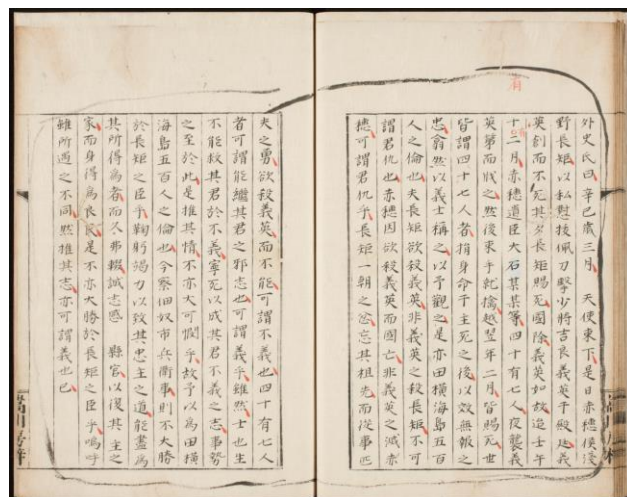 有
外史氏曰辛巳歳三月　天使東下是日赤穂侯淺
野長矩以私懟拔佩刀擊少將吉良義英于殿廷義
英創而不死其夕長矩賜死國除義英如故迨壬午
十二月赤穂遺臣大石某等四十有七人夜襲義
英第而戕之然後束手就擒越翌年二月皆賜死世
皆謂四十七人者捐身命于主死之後以效無報之
忠翕然以義士稱之以予觀之是亦田横海島五百
人之倫也夫長矩欲殺義英非義英之殺長矩不可
謂君仇也赤穂因欲殺義英而國亡非義英之滅赤
穂可謂君仇乎長矩一朝之忿忘其祖先而從事匹
夫之勇欲殺義英而不能可謂不義也四十有七人
者可謂能繼其君之邪志也可謂義乎雖然士也生
不能救其君於不義寧死以成其君不義之志事勢
之至於此是推其情不亦大可憫乎故予以為田横
海島五百人之倫也今察佃奴市兵衞事則不大勝
於長矩之臣乎鞠躬竭力以致其忠主之道能盡為
其所得為者而久弗輟誠志感　縣官以復其主之
家而身得為良民是不亦大勝於長矩之臣乎嗚呼
雖所遇之不同然推其志亦可謂義也已